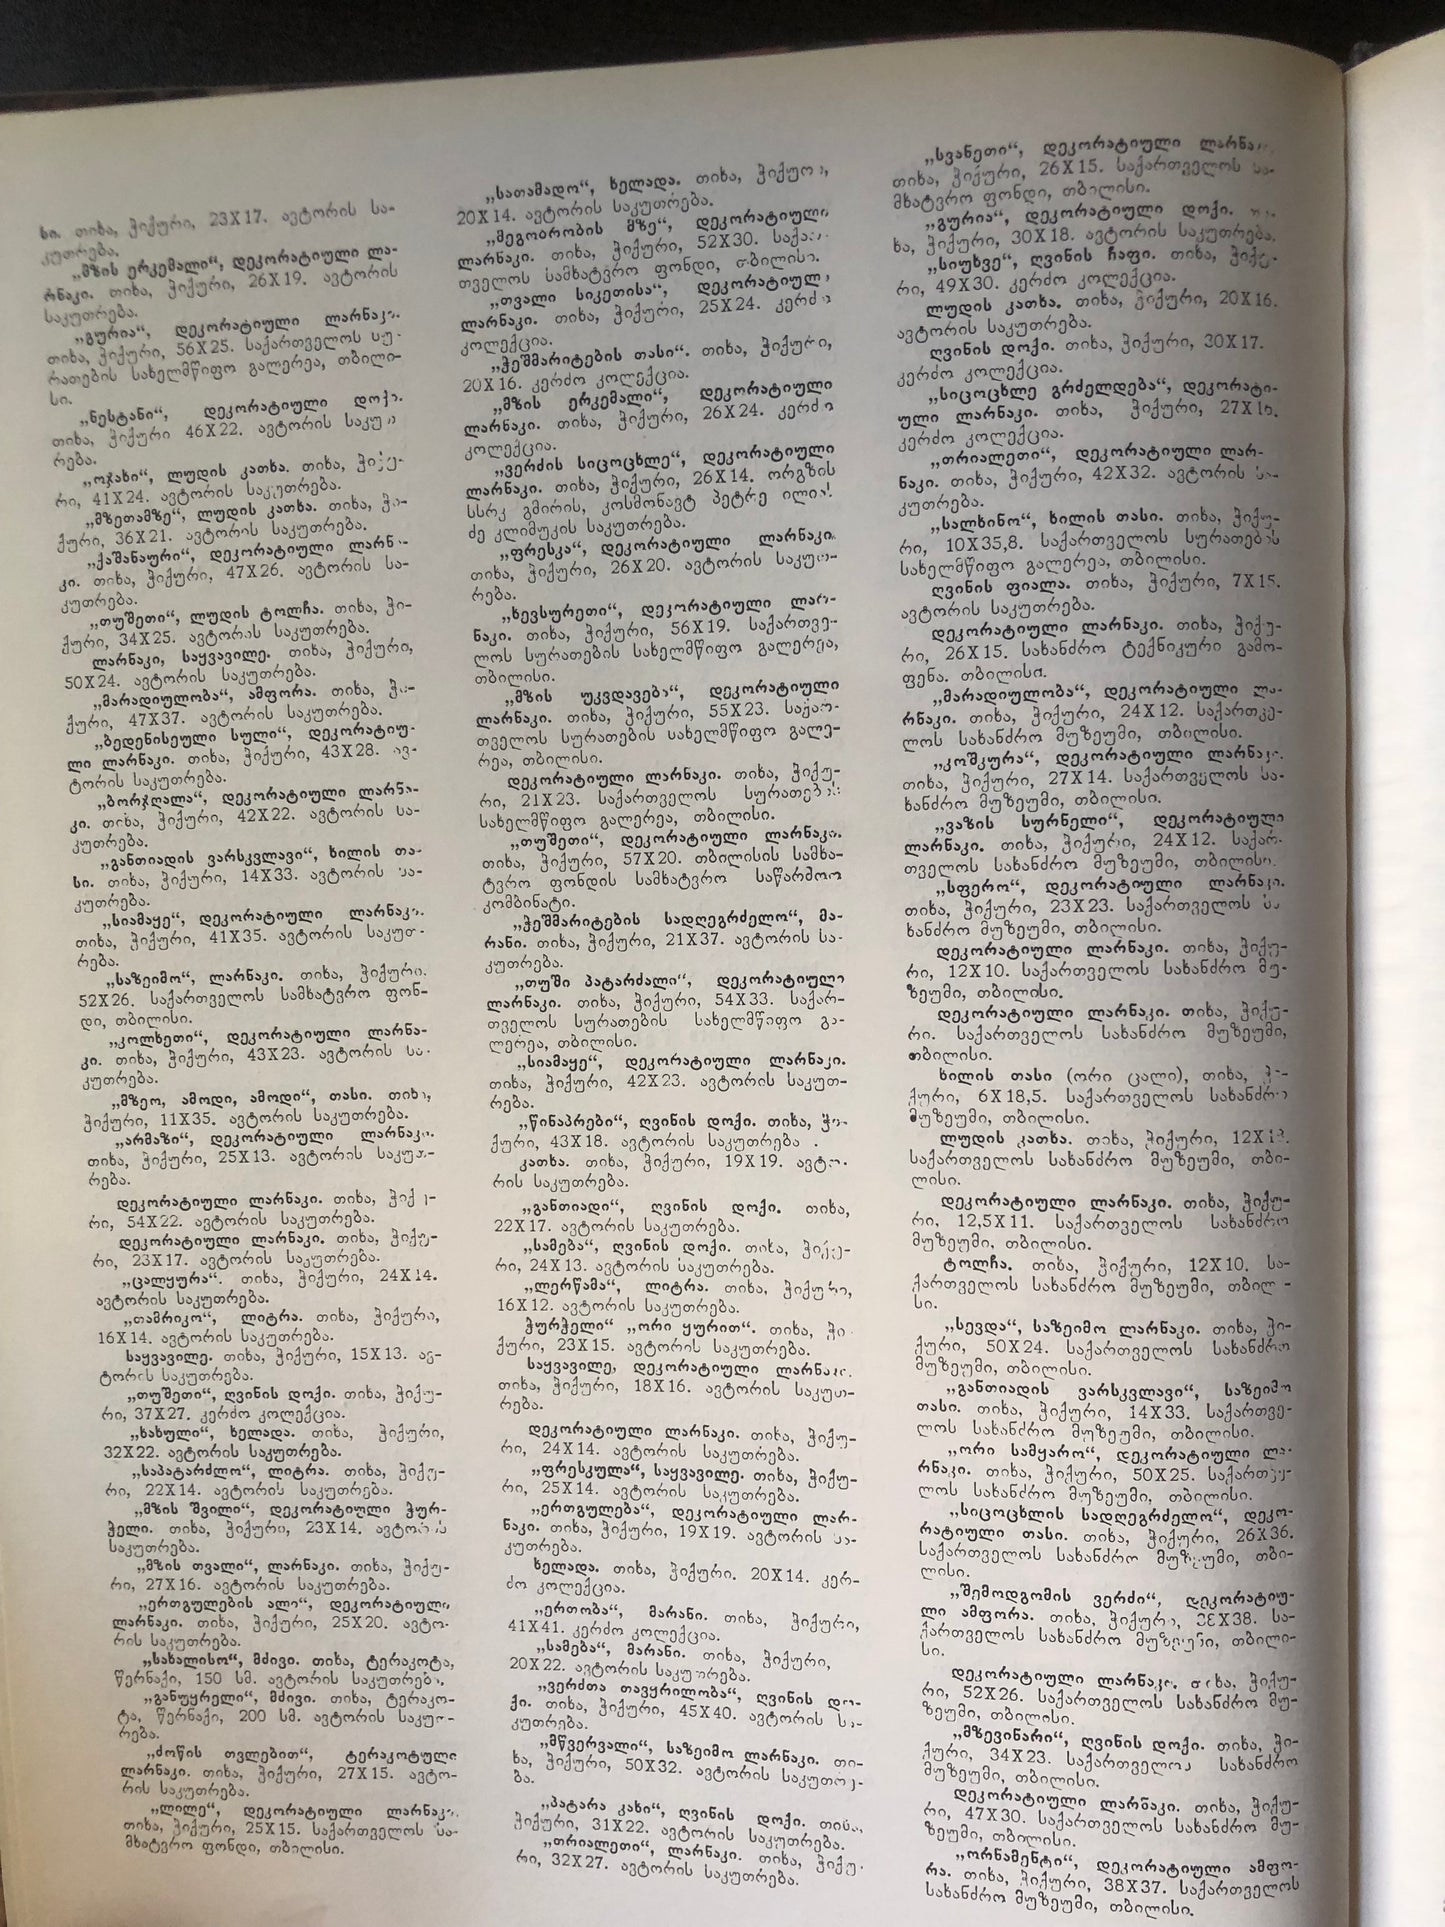 სი. თიხა, ჭიქური, 23X17. ავტორის სა-
კუთრება.
„მზის ერკემალი“, დეკორატიული ლა-
რნაკი. თიხა, ჭიქური, 26X19. ავტორის
საკუთრება.
„გურია“, დეკორატიული ლარნაკი.
თიხა, ჭიქური, 56X25. საქართველოს სუ-
რათების სახელმწიფო გალერეა, თბილი-
სი.
„ნესტანი“, დეკორატიული დოქი.
თიხა, ჭიქური 46X22. ავტორის საკუთ-
რება.
„ოჯახი“, ლუდის კათხა. თიხა, ჭიქუ-
რი, 41X24. ავტორის საკუთრება.
„მზეთამზე“, ლუდის კათხა. თიხა, ჭი-
ქური, 36X21. ავტორის საკუთრება.
„ქაშანაური“, დეკორატიული ლარნა-
კი. თიხა, ჭიქური, 47X26. ავტორის სა-
კუთრება.
„თუშეთი“, ლუდის ტოლჩა. თიხა, ჭი-
ქური, 34X25. ავტორის საკუთრება.
ლარნაკი, საყვავილე. თიხა, ჭიქური,
50X24. ავტორის საკუთრება.
„მარადიულობა“, ამფორა. თიხა, ჭი-
ქური, 47X37. ავტორის საკუთრება.
„ბედენისეული სული“, დეკორატიუ-
ლი ლარნაკი. თიხა, ჭიქური, 43X28. ავ-
ტორის საკუთრება.
„ბორჯღალა“, დეკორატიული ლარნა-
კი. თიხა, ჭიქური, 42X22. ავტორის სა-
კუთრება.
„განთიადის ვარსკვლავი“, ხილის თა-
სი. თიხა, ჭიქური, 14X33. ავტორის სა-
კუთრება.
„სიამაყე“, დეკორატიული ლარნაკი.
თიხა, ჭიქური, 41X35. ავტორის საკუთ-
რება.
„საზეიმო“, ლარნაკი. თიხა, ჭიქური.
52X26. საქართველოს სამხატვრო ფონ-
დი, თბილისი.
„კოლხეთი“, დეკორატიული ლარნა-
კი. თიხა, ჭიქური, 43X23. ავტორის სა-
კუთრება.
„მზეო, ამოდი, ამოდი“, თასი. თიხა,
ჭიქური, 11X35. ავტორის საკუთრება.
„არმაზი“, დეკორატიული ლარნაკი.
თიხა, ჭიქური, 25X13. ავტორის საკუთ-
რება.
დეკორატიული ლარნაკი. თიხა, ჭიქუ-
რი, 54X22. ავტორის საკუთრება.
დეკორატიული ლარნაკი. თიხა, ჭიქუ-
რი, 23X17. ავტორის საკუთრება.
„ცალყურა“. თიხა, ჭიქური, 24X14.
ავტორის საკუთრება.
„თამრიკო“, ლიტრა. თიხა, ჭიქური,
16X14. ავტორის საკუთრება.
საყვავილე. თიხა, ჭიქური, 15X13. ავ-
ტორის საკუთრება.
„თუშეთი“, ღვინის დოქი. თიხა, ჭიქუ-
რი, 37X27. კერძო კოლექცია.
„ხახული“, ხელადა. თიხა, ჭიქური,
32X22. ავტორის საკუთრება.
„საპატარძლო“, ლიტრა. თიხა, ჭიქუ-
რი, 22X14. ავტორის საკუთრება.
„მზის შვილი“, დეკორატიული ჭურ-
ჭელი. თიხა, ჭიქური, 23X14. ავტორის
საკუთრება.
„მზის თვალი“, ლარნაკი. თიხა, ჭიქუ-
რი, 27X16. ავტორის საკუთრება.
„ერთგულების ალი“, დეკორატიული
ლარნაკი. თიხა, ჭიქური, 25X20. ავტო-
რის საკუთრება.
„სახალისო“, მძივი. თიხა, ტერაკოტა,
წერნაქი, 150 სმ. ავტორის საკუთრება.
„განუყრელი“, მძივი. თიხა, ტერაკო-
ტა, წერნაქი, 200 სმ. ავტორის საკუთ-
რება.
„ძოწის თვლებით“, ტერაკოტული
ლარნაკი. თიხა, ჭიქური, 27X15. ავტო-
რის საკუთრება.
„ლილე“, დეკორატიული ლარნაკი.
თიხა, ჭიქური, 25X15. საქართველოს სა-
მხატვრო ფონდი, თბილისი.
„სათამადო“, ხელადა. თიხა, ჭიქური,
20X14. ავტორის საკუთრება.
„მეგობრობის მზე“, დეკორატიული
ლარნაკი. თიხა, ჭიქური, 52X30. საქარ-
თველოს სამხატვრო ფონდი, თბილისი.
„თვალი სიკეთისა“, დეკორატიული
ლარნაკი. თიხა, ჭიქური, 25X24. კერძო
კოლექცია.
„ჭეშმარიტების თასი“. თიხა, ჭიქური,
20X16. კერძო კოლექცია.
„მზის ერკემალი“, დეკორატიული
ლარნაკი. თიხა, ჭიქური, 26X24. კერძო
კოლექცია.
„ვერძის სიცოცხლე“, დეკორატიული
ლარნაკი. თიხა, ჭიქური, 26X14. ორგზის
სსრკ გმირის, კოსმონავტ პეტრე ილიას
ძე კლიმუკის საკუთრება.
„ფრესკა“, დეკორატიული ლარნაკი.
თიხა, ჭიქური, 26X20. ავტორის საკუთ-
რება.
„ხევსურეთი“, დეკორატიული ლარ-
ნაკი. თიხა, ჭიქური, 56X19. საქართვე-
ლოს სურათების სახელმწიფო გალერეა,
თბილისი.
„მზის უკვდავება“, დეკორატიული
ლარნაკი. თიხა, ჭიქური, 55X23. საქარ-
თველოს სურათების სახელმწიფო გალე-
რეა, თბილისი.
დეკორატიული ლარნაკი. თიხა, ჭიქუ-
რი, 21X23. საქართველოს სურათების
სახელმწიფო გალერეა, თბილისი.
„თუშეთი“, დეკორატიული ლარნაკი.
თიხა, ჭიქური, 57X20. თბილისის სამხა-
ტვრო ფონდის სამხატვრო საწარმოო
კომბინატი.
„ჭეშმარიტების სადღეგრძელო“, მა-
რანი. თიხა, ჭიქური, 21X37. ავტორის სა-
კუთრება.
„თუში პატარძალი“, დეკორატიული
ლარნაკი. თიხა, ჭიქური, 54X33. საქარ-
თველოს სურათების სახელმწიფო გა-
ლერეა, თბილისი.
„სიამაყე“, დეკორატიული ლარნაკი.
თიხა, ჭიქური, 42X23. ავტორის საკუთ-
რება.
„წინაპრები“, ღვინის დოქი. თიხა, ჭი-
ქური, 43X18. ავტორის საკუთრება .
კათხა. თიხა, ჭიქური, 19X19. ავტო-
რის საკუთრება.
„განთიადი“, ღვინის დოქი. თიხა,
22X17. ავტორის საკუთრება.
„სამება“, ღვინის დოქი. თიხა, ჭიქუ-
რი, 24X13. ავტორის საკუთრება.
„ლერწამა“, ლიტრა. თიხა, ჭიქური,
16X12. ავტორის საკუთრება.
ჭურჭელი“ „ორი ყურით“. თიხა, ჭი-
ქური, 23X15. ავტორის საკუთრება.
საყვავილე, დეკორატიული ლარნაკი.
თიხა, ჭიქური, 18X16. ავტორის საკუთ-
რება.
დეკორატიული ლარნაკი. თიხა, ჭიქუ-
რი, 24X14. ავტორის საკუთრება.
„ფრესკულა“, საყვავილე. თიხა, ჭიქუ-
რი, 25X14. ავტორის საკუთრება.
„ერთგულება“, დეკორატიული ლარ-
ნაკი. თიხა, ჭიქური, 19X19. ავტორის სა-
კუთრება.
ხელადა. თიხა, ჭიქური. 20X14. კერ-
ძო კოლექცია.
„ერთობა“, მარანი. თიხა, ჭიქური,
41X41. კერძო კოლექცია.
„სამება“, მარანი. თიხა, ჭიქური,
20X22. ავტორის საკუთრება.
„ვერძთა თავყრილობა“, ღვინის დო-
ქი. თიხა, ჭიქური, 45X40. ავტორის სა-
კუთრება.
„მწვერვალი“, საზეიმო ლარნაკი. თი-
ხა, ჭიქური, 50X32. ავტორის საკუთრე-
ბა.
„პატარა კახი“, ღვინის დოქი. თიხა,
ჭიქური, 31X22. ავტორის საკუთრება.
„თრიალეთი“, ლარნაკი. თიხა, ჭიქუ-
რი, 32X27. ავტორის საკუთრება.
„სვანეთი“, დეკორატიული ლარნაკი.
თიხა, ჭიქური, 26X15. საქართველოს სა-
მხატვრო ფონდი, თბილისი.
„გურია“, დეკორატიული დოქი. თი-
ხა, ჭიქური, 30X18. ავტორის საკუთრება.
„სიუხვე“, ღვინის ჩაფი. თიხა, ჭიქუ-
რი, 49X30. კერძო კოლექცია.
ლუდის კათხა. თიხა, ჭიქური, 20X16.
ავტორის საკუთრება.
ღვინის დოქი. თიხა, ჭიქური, 30X17.
კერძო კოლექცია.
„სიცოცხლე გრძელდება“, დეკორატი-
ული ლარნაკი. თიხა, ჭიქური,
კერძო კოლექცია.
„თრიალეთი“, დეკორატიული ლარ-
ნაკი. თიხა, ჭიქური, 42X32. ავტორის სა-
კუთრება.
„სალხინო“, ხილის თასი. თიხა, ჭიქუ-
რი, 10X35,8. საქართველოს სურათების
სახელმწიფო გალერეა, თბილისი.
ღვინის ფიალა. თიხა, ჭიქური, 7X15.
ავტორის საკუთრება.
დეკორატიული ლარნაკი. თიხა, ჭიქუ-
რი, 26X15. სახანძრო ტექნიკური გამო-
ფენა. თბილისი.
„მარადიულობა“, დეკორატიული ლა-
რნაკი. თიხა, ჭიქური, 24X12. საქართვე-
ლოს სახანძრო მუზეუმი, თბილისი.
„კოშკურა“, დეკორატიული ლარნაკი.
თიხა, ჭიქური, 27X14. საქართველოს სა-
ხანძრო მუზეუმი, თბილისი.
„ვაზის სურნელი“, დეკორატიული
ლარნაკი. თიხა, ჭიქური, 24X12. საქარ-
თველოს სახანძრო მუზეუმი, თბილისი.
„სფერო“, დეკორატიული ლარნაკი.
თიხა, ჭიქური, 23X23. საქართველოს სა-
ხანძრო მუზეუმი, თბილისი.
დეკორატიული ლარნაკი. თიხა, ჭიქუ-
რი, 12X10. საქართველოს სახანძრო მუ-
ზეუმი, თბილისი.
დეკორატიული ლარნაკი. თიხა, ჭიქუ-
რი. საქართველოს სახანძრო მუზეუმი,
თბილისი.
ხილის თასი (ორი ცალი), თიხა, ჭი-
ქური, 6X18,5. საქართველოს სახანძრო
მუზეუმი, თბილისი.
ლუდის კათხა. თიხა, ჭიქური,
საქართველოს სახანძრო მუზეუმი, თბი-
ლისი.
დეკორატიული ლარნაკი. თიხა, ჭიქუ-
რი, 12,5X11. საქართველოს სახანძრო
მუზეუმი, თბილისი.
ტოლჩა. თიხა, ჭიქური, 12X10. სა-
ქართველოს სახანძრო მუზეუმი, თბილი-
სი.
„სევდა“, საზეიმო ლარნაკი. თიხა, ჭი-
ქური, 50X24. საქართველოს სახანძრო
მუზეუმი, თბილისი.
„განთიადის ვარსკვლავი“, საზეიმო
თასი. თიხა, ჭიქური, 14X33. საქართვე-
ლოს სახანძრო მუზეუმი, თბილისი.
„ორი სამყარო“, დეკორატიული ლა-
რნაკი. თიხა, ჭიქური, 50X25. საქართვე-
ლოს სახანძრო მუზეუმი, თბილისი.
„სიცოცხლის სადღეგრძელო“, დეკო-
რატიული თასი. თიხა, ჭიქური, 26X36.
საქართველოს სახანძრო მუზეუმი, თბი-
ლისი.
„შემოდგომის ვერძი“, დეკორატიუ-
ლი ამფორა. თიხა, ჭიქური, სა-
ქართველოს სახანძრო მუზეუმი, თბილი-
სი.
დეკორატიული ლარნაკი. თიხა, ჭიქუ-
რი, 52X26. საქართველოს სახანძრო მუ-
ზეუმი, თბილისი.
„მზევინარი“, ღვინის დოქი. თიხა, ჭი-
ქური, 34X23. საქართველოს სახანძრო
მუზეუმი, თბილისი.
დეკორატიული ლარნაკი. თიხა, ჭიქუ-
რი, 47X30. საქართველოს სახანძრო მუ-
ზეუმი, თბილისი.
„ორნამენტი“, დეკორატიული ამფო-
რა. თიხა, ჭიქური, 38X37. საქართველოს
სახანძრო მუზეუმი, თბილისი.